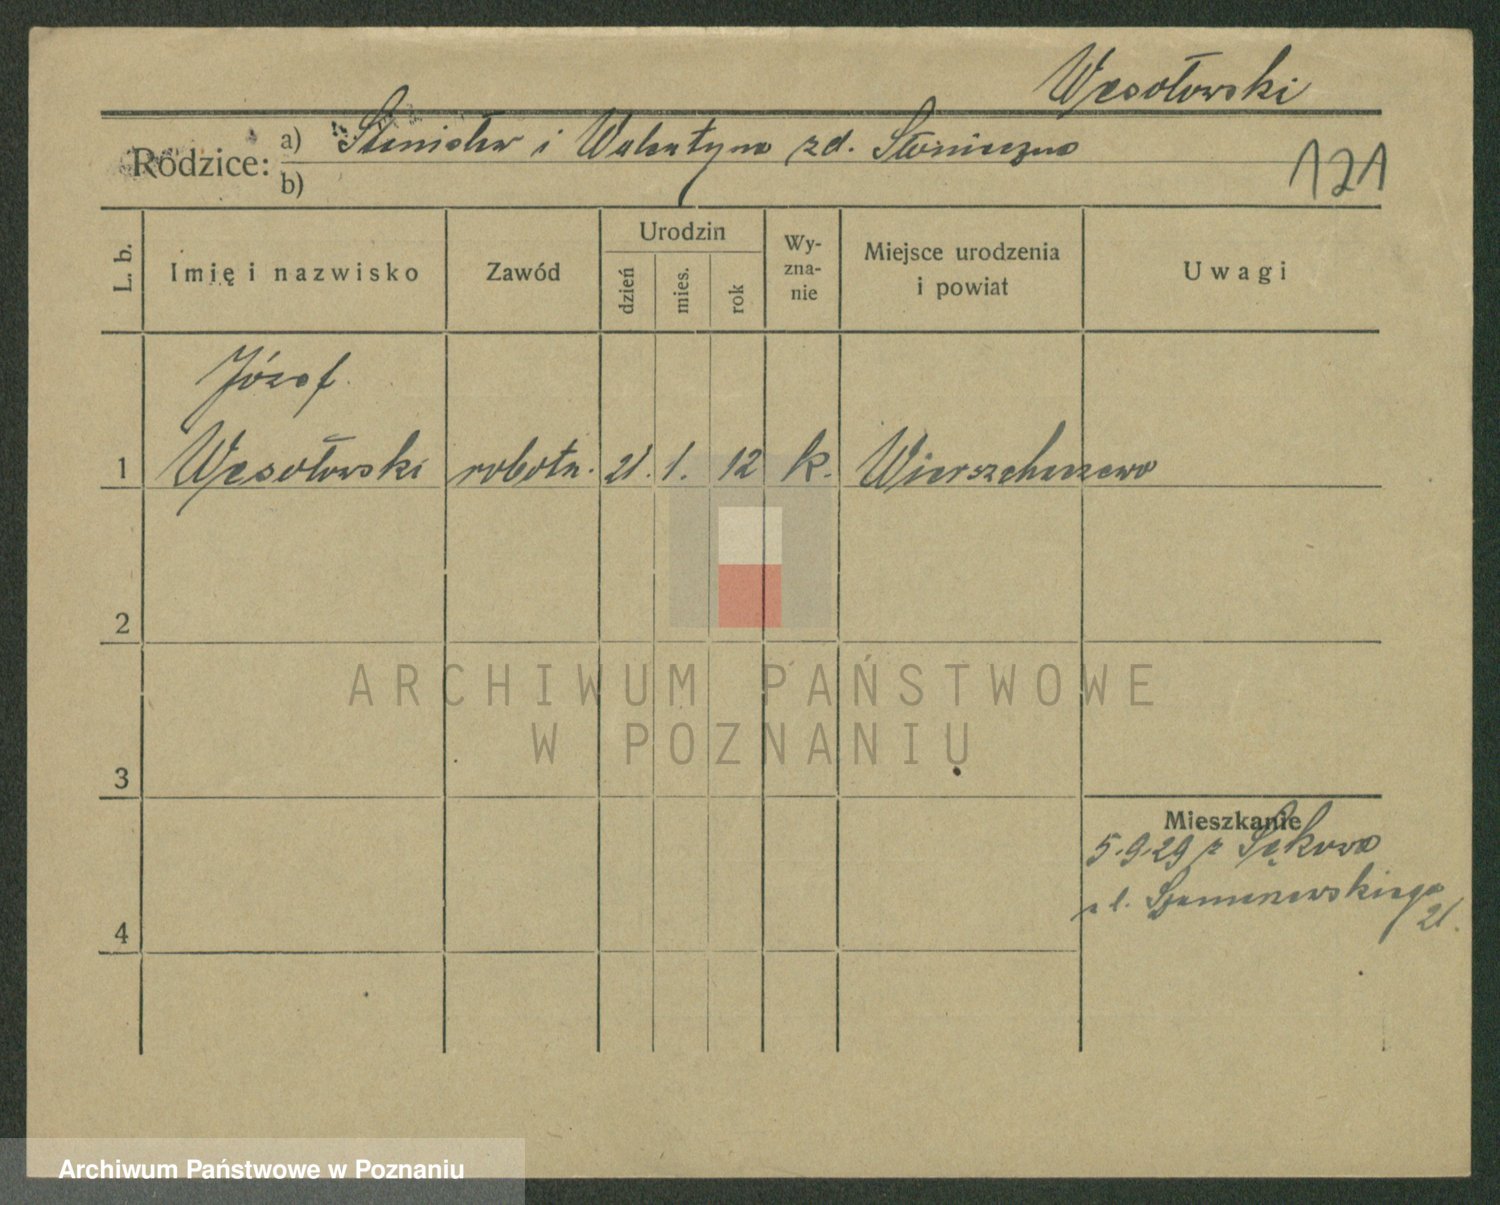 Wesołowski
Rodzice: a) Stanisław i Walentyna zd. Słoniczna
b)
121
L. b.
Imię i nazwisko
Zawód
Urodzin
dzień
mies.
rok
Wy-
zna-
nie
Miejsce urodzenia
i powiat
Uwagi
Józef
1 Wesołowski robotn. 21. 1. 12 k. Wierzchaczewo
2
ARCHIWUM PAŃSTWOWE
W POZNANIU
3
Mieszkanie
5.9.29 z Sękowo
ul.
21.
4
Archiwum Państwowe w Poznaniu